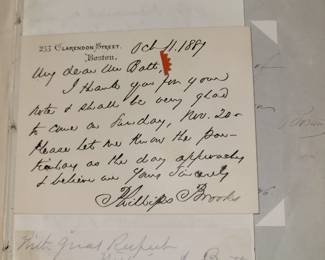 233 Clarendon Street.
Boston.
Oct 11. 1887
My dear Mr Batt,
I thank you for your
note & shall be very glad
to come on Sunday, Nov. 20—
Please let me know the par-
ticulars as the day approaches
& believe me Yours Sincerely
Phillips Brooks
With Great Respect